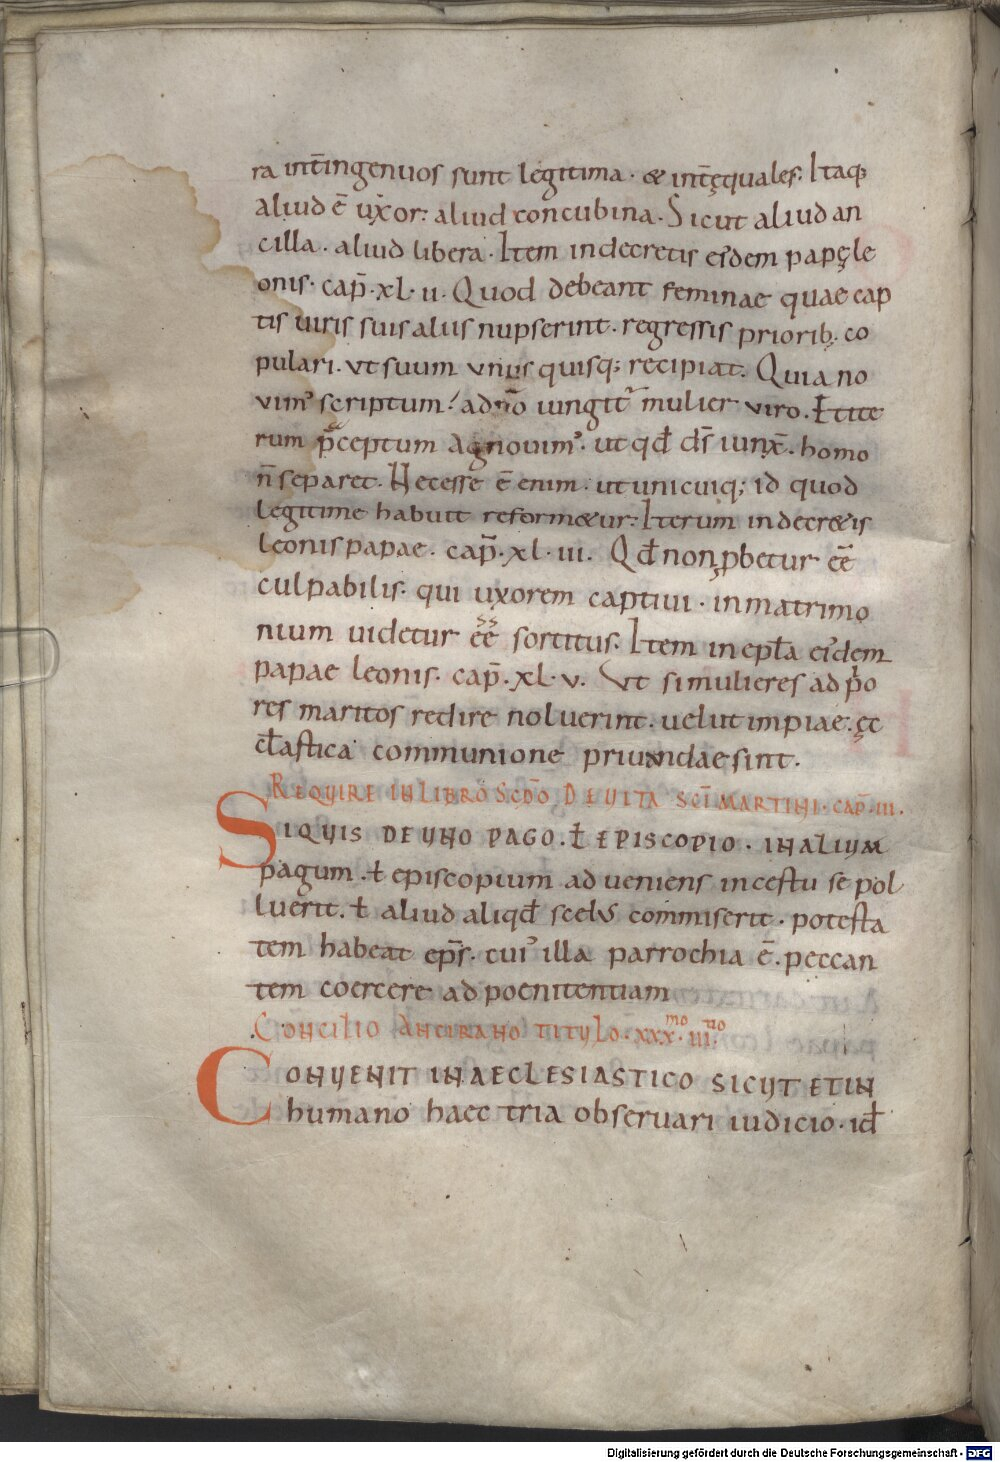 ra int̄ingenuos sunt legitima · & int̄ęquales. Itaq;
aliud ē uxor: aliud concubina. Sicut aliud an
cilla · aliud libera · Item indecretis eisdem papęle
onis · cap̄ · xl · ii · Quod debeant feminae quae cap
tis uiris suis aliis nupserint · regressis priorib; co
pulari · ut suum unusquisq; recipiat. Quia no
uim' scriptum! adn̄o iungit' mulier viro. Et ite
rum p̄ceptum agnouim' · ut qđ ds̄ iunx̄ · homo
n̄ separet. Necesse ē enim · ut unicuiq; id quod
legitime habuit reform&ur: Iterum indecr&is
leonis papae · cap̄ · xl · iii. Qđ non ꝓbetur eē
culpabilis · qui uxorem captiui · inmatrimo
nium uidetur eē sortitus. Item in epła eiusdem
papae leonis · cap̄ · xl · v. Ut simulieres ad p̄o
res maritos redire noluerint · uelut impiae · ęc
cłastica communione priuandae sint.
Require in libro scd̄o de uita sc̄i Martini · cap̄ · iii.
Siquis de uno pago · ł episcopio · in alium
pagum · ł episcopium adueniens incestu se pol
luerit · ł aliud aliqđ scelus commiserit · potesta
tem habeat ep̄s · cui' illa parrochia ē · peccan
tem coercere ad poenitentiam
Concilio Ancirano titulo · xxx · mo iiii · no
Conuenit in aeclesiastico sicut et in
humano haec tria obseruari iudicio · iđ
Digitalisierung gefördert durch die Deutsche Forschungsgemeinschaft - DFG